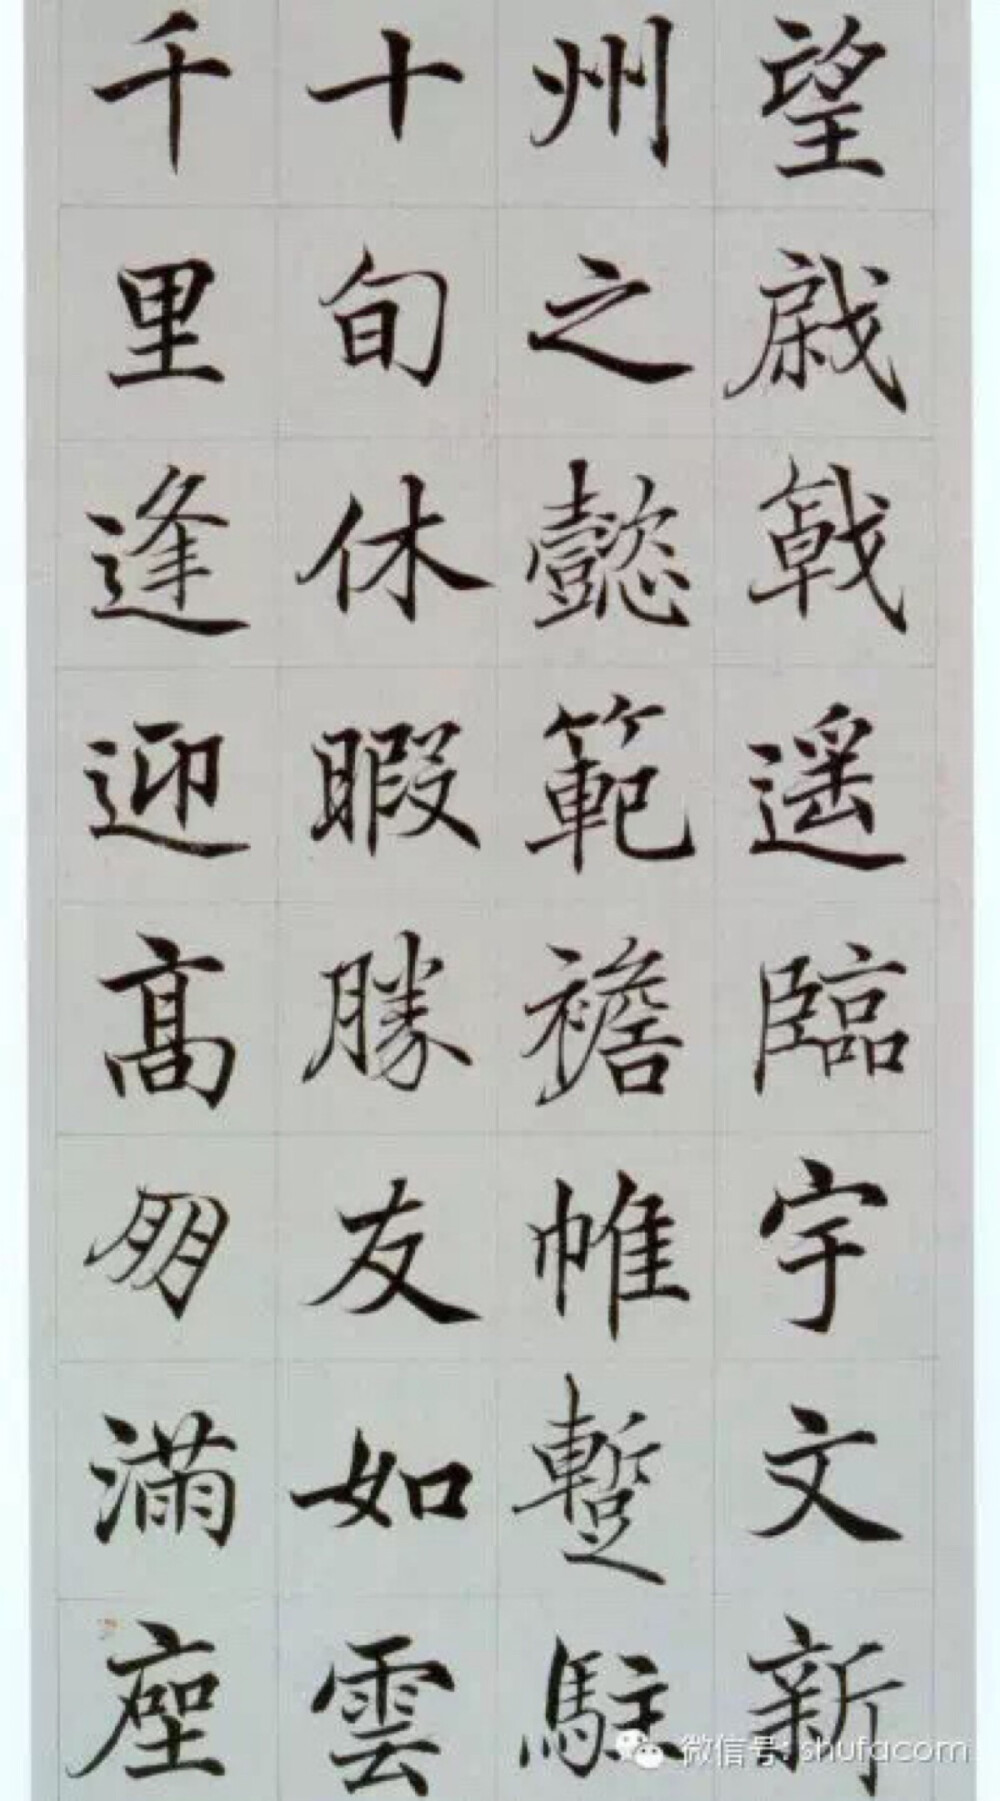 望戚戟遥臨宇文新
州之懿範襜帷蹔駐
十旬休暇勝友如雲
千里逢迎高朋滿座
微信号: shufacom